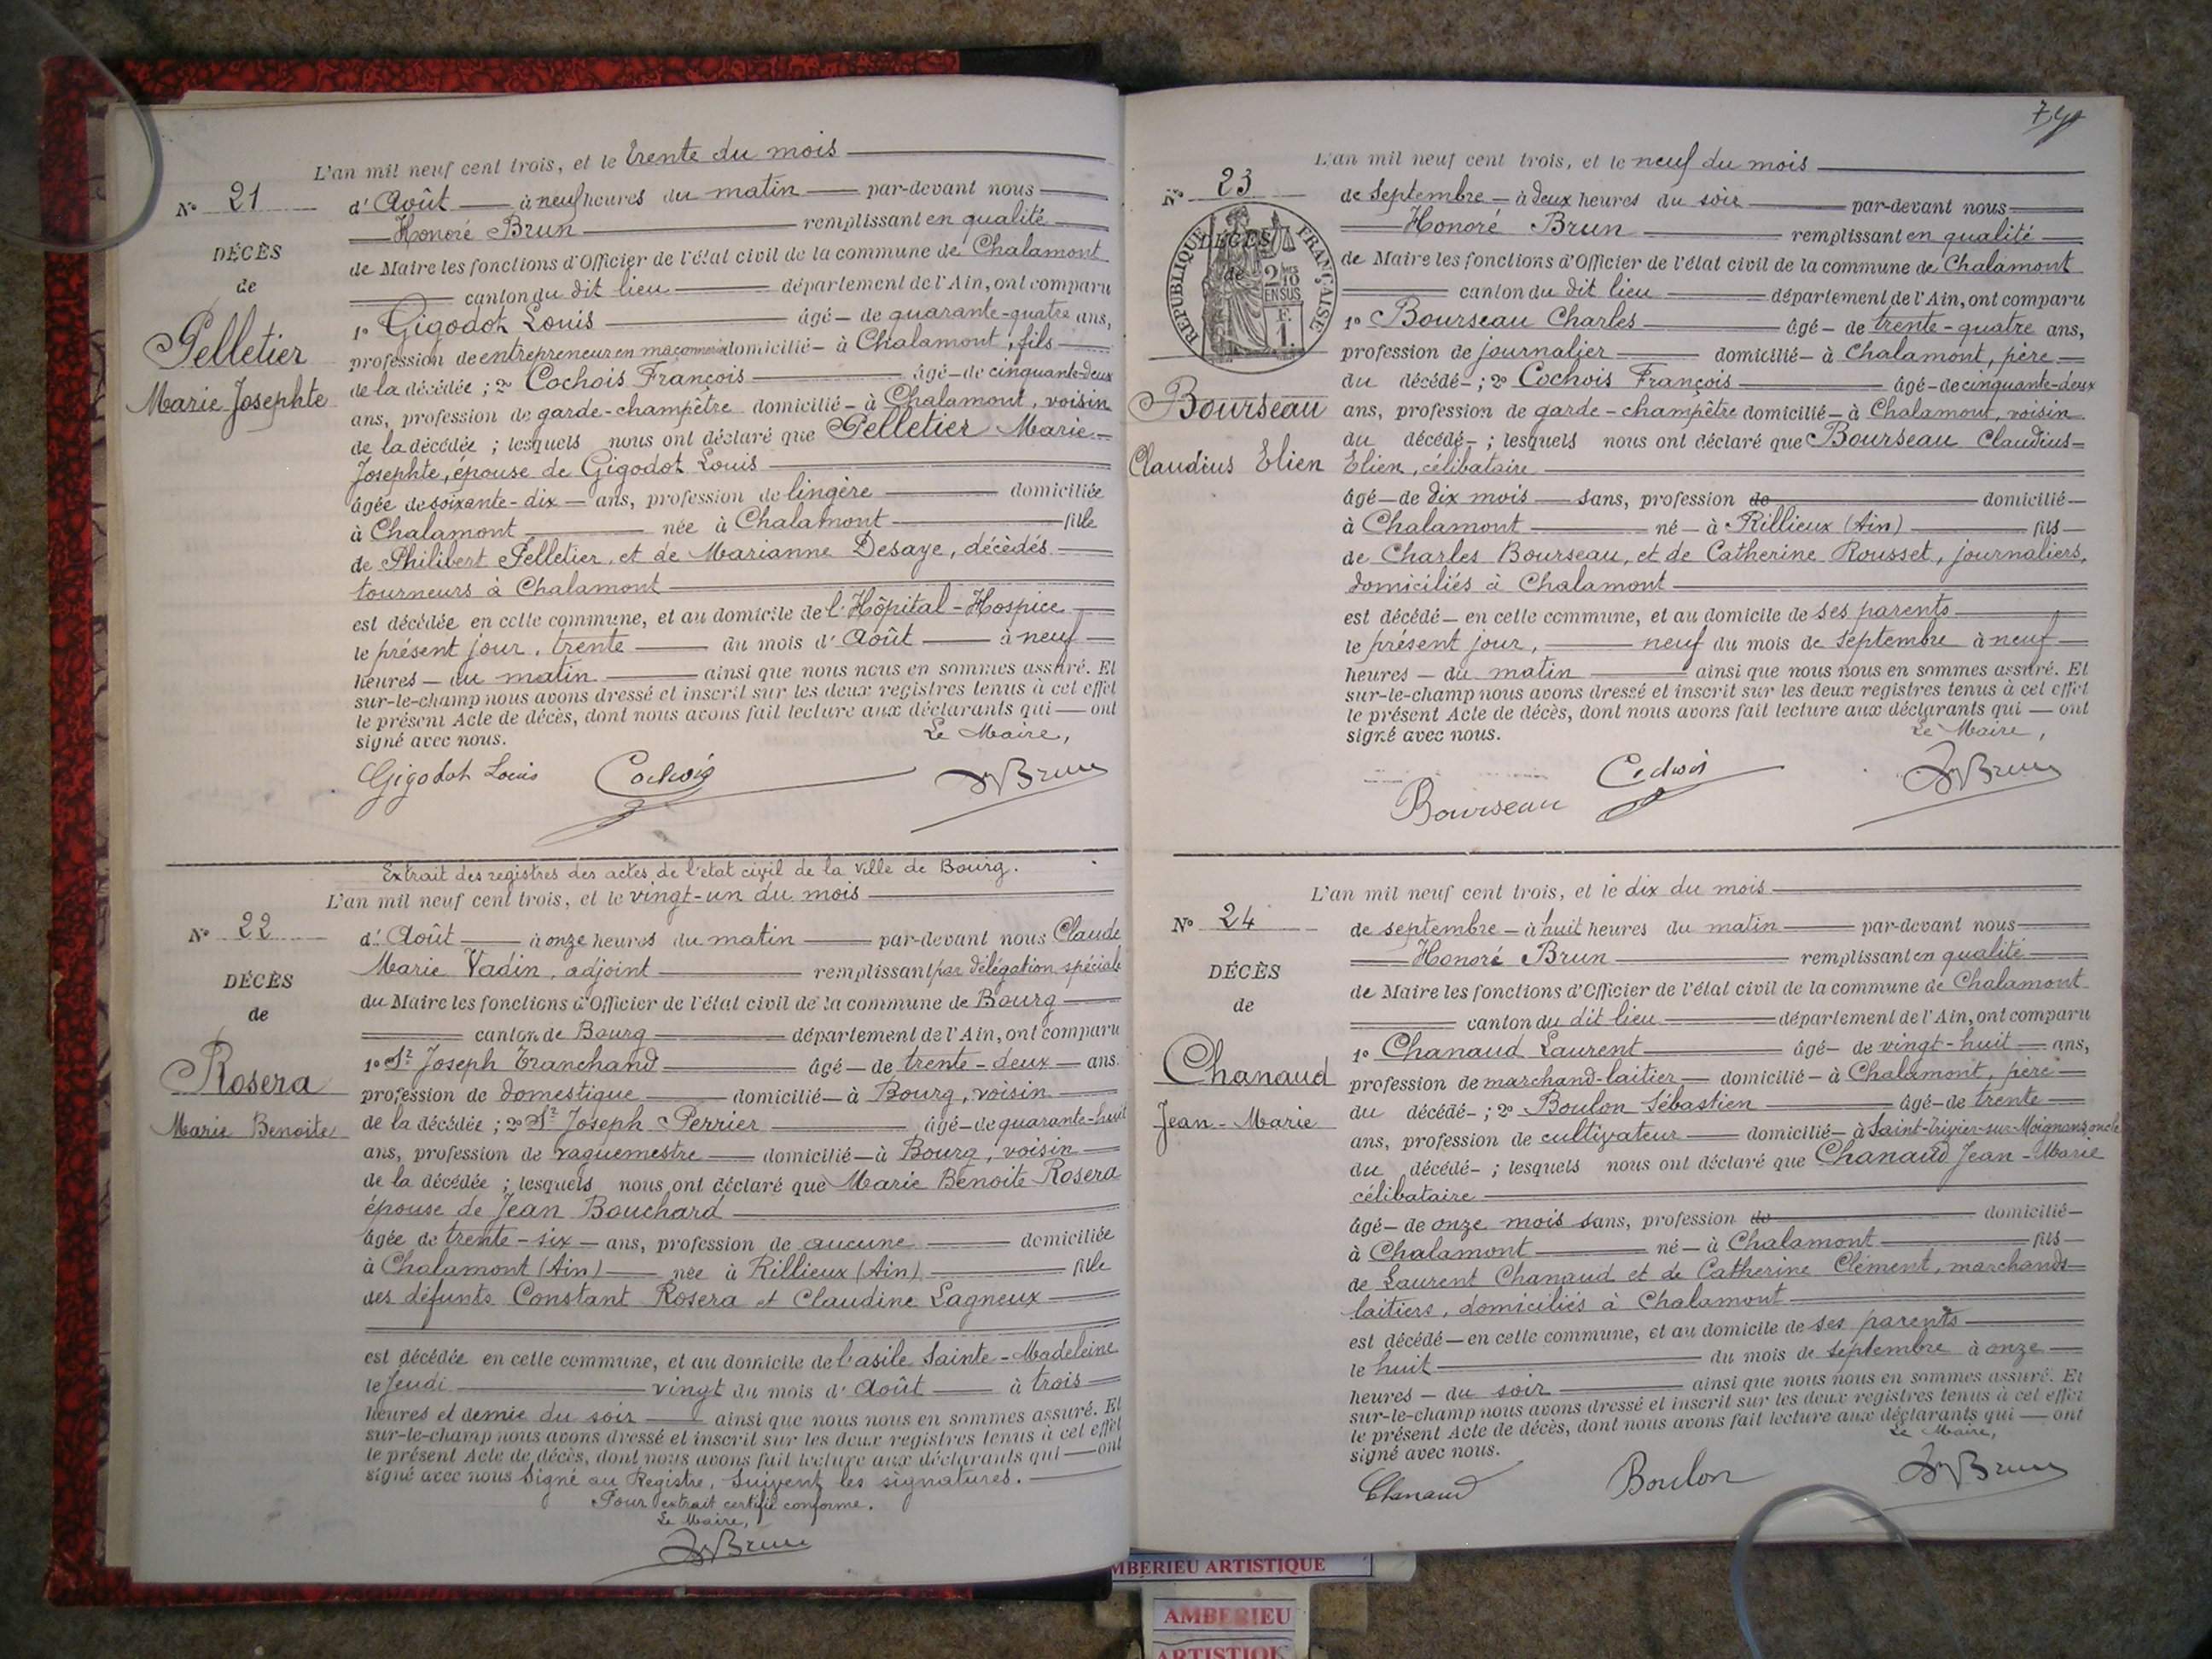 L'an mil neuf cent trois, et le trente du mois
N° 21
d'Août à neuf heures du matin par-devant nous
Honoré Brun remplissant en qualité
DÉCÈS
de Maire les fonctions d'Officier de l'état civil de la commune de Chalamont
de
canton du dit lieu département de l'Ain, ont comparu
1° Gigodot Louis âgé de quarante-quatre ans,
Pelletier
profession de entrepreneur en maçonnerie domicilié à Chalamont, fils
Marie Josephte
de la décédée ; 2° Cochois François âgé de cinquante-deux
ans, profession de garde-champêtre domicilié à Chalamont, voisin
de la décédée ; lesquels nous ont déclaré que Pelletier Marie-
Josephte, épouse de Gigodot Louis
âgée de soixante-dix ans, profession de lingère domiciliée
à Chalamont née à Chalamont fille
de Philibert Pelletier, et de Marianne Desaye, décédés
tourneurs à Chalamont
est décédée en cette commune, et au domicile de l'Hôpital-Hospice
le présent jour, trente du mois d'Août à neuf
heures du matin ainsi que nous nous en sommes assuré. Et
sur-le-champ nous avons dressé et inscrit sur les deux registres tenus à cet effet
le présent Acte de décès, dont nous avons fait lecture aux déclarants qui ont
signé avec nous. Le Maire,
Gigodot Louis Cochois HBrun
Extrait des registres des actes de l'état civil de la Ville de Bourg.
L'an mil neuf cent trois, et le vingt-un du mois
N° 22
d'Août à onze heures du matin par-devant nous Claude
Marie Vadin, adjoint remplissant par délégation spéciale
DÉCÈS
du Maire les fonctions d'Officier de l'état civil de la commune de Bourg
de
canton de Bourg département de l'Ain, ont comparu
1° Sr Joseph Tranchand âgé de trente-deux ans
Rosera
profession de domestique domicilié à Bourg, voisin
Marie Benoite
de la décédée ; 2° Sr Joseph Perrier âgé de quarante-huit
ans, profession de vaguemestre domicilié à Bourg, voisin
de la décédée ; lesquels nous ont déclaré que Marie Benoite Rosera
épouse de Jean Bouchard
âgée de trente-six ans, profession de aucune domiciliée
à Chalamont (Ain) née à Rillieux (Ain) fille
des défunts Constant Rosera et Claudine Lagneux
est décédée en cette commune, et au domicile de l'asile Sainte-Madeleine
le Jeudi vingt du mois d'Août à trois
heures et demie du soir ainsi que nous nous en sommes assuré. Et
sur-le-champ nous avons dressé et inscrit sur les deux registres tenus à cet effet
le présent Acte de décès, dont nous avons fait lecture aux déclarants qui ont
signé avec nous Signé au Registre, Suivent les signatures.
Pour extrait certifié conforme.
Le Maire,
HBrun
L'an mil neuf cent trois, et le neuf du mois
N° 23
de Septembre à deux heures du soir par-devant nous
Honoré Brun remplissant en qualité
RÉPUBLIQUE FRANÇAISE
DÉCÈS
de
2/10 EN SUS
F. 1.
de Maire les fonctions d'Officier de l'état civil de la commune de Chalamont
canton du dit lieu département de l'Ain, ont comparu
1° Bourseau Charles âgé de trente-quatre ans,
profession de journalier domicilié à Chalamont, père
du décédé ; 2° Cochois François âgé de cinquante-deux
Bourseau
ans, profession de garde-champêtre domicilié à Chalamont, voisin
du décédé ; lesquels nous ont déclaré que Bourseau Claudius-
Claudius Elien
Elien, célibataire
âgé de dix mois sans, profession de domicilié
à Chalamont né à Rillieux (Ain) fils
de Charles Bourseau, et de Catherine Rousset, journaliers,
domiciliés à Chalamont
est décédé en cette commune, et au domicile de ses parents
le présent jour, neuf du mois de Septembre à neuf
heures du matin ainsi que nous nous en sommes assuré. Et
sur-le-champ nous avons dressé et inscrit sur les deux registres tenus à cet effet
le présent Acte de décès, dont nous avons fait lecture aux déclarants qui ont
signé avec nous. Le Maire,
Bourseau Cochois HBrun
L'an mil neuf cent trois, et le dix du mois
N° 24
de septembre à huit heures du matin par-devant nous
Honoré Brun remplissant en qualité
DÉCÈS
de Maire les fonctions d'Officier de l'état civil de la commune de Chalamont
de
canton du dit lieu département de l'Ain, ont comparu
1° Chanaud Laurent âgé de vingt-huit ans,
Chanaud
profession de marchand-laitier domicilié à Chalamont, père
Jean-Marie
du décédé ; 2° Boulon Sébastien âgé de trente
ans, profession de cultivateur domicilié à Saint-Trivier-sur-Moignans, oncle
du décédé ; lesquels nous ont déclaré que Chanaud Jean-Marie
célibataire
âgé de onze mois sans, profession de domicilié
à Chalamont né à Chalamont fils
de Laurent Chanaud et de Catherine Clément, marchands
laitiers, domiciliés à Chalamont
est décédé en cette commune, et au domicile de ses parents
le huit du mois de Septembre à onze
heures du soir ainsi que nous nous en sommes assuré. Et
sur-le-champ nous avons dressé et inscrit sur les deux registres tenus à cet effet
le présent Acte de décès, dont nous avons fait lecture aux déclarants qui ont
signé avec nous. Le Maire,
Chanaud Boulon HBrun
MBERIEU ARTISTIQUE
AMBERIEU
ARTISTIQ